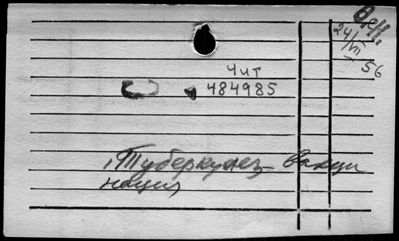 О.Н.
24/VII
56
Чит
484985
Туберкулез_ Вакци
нация